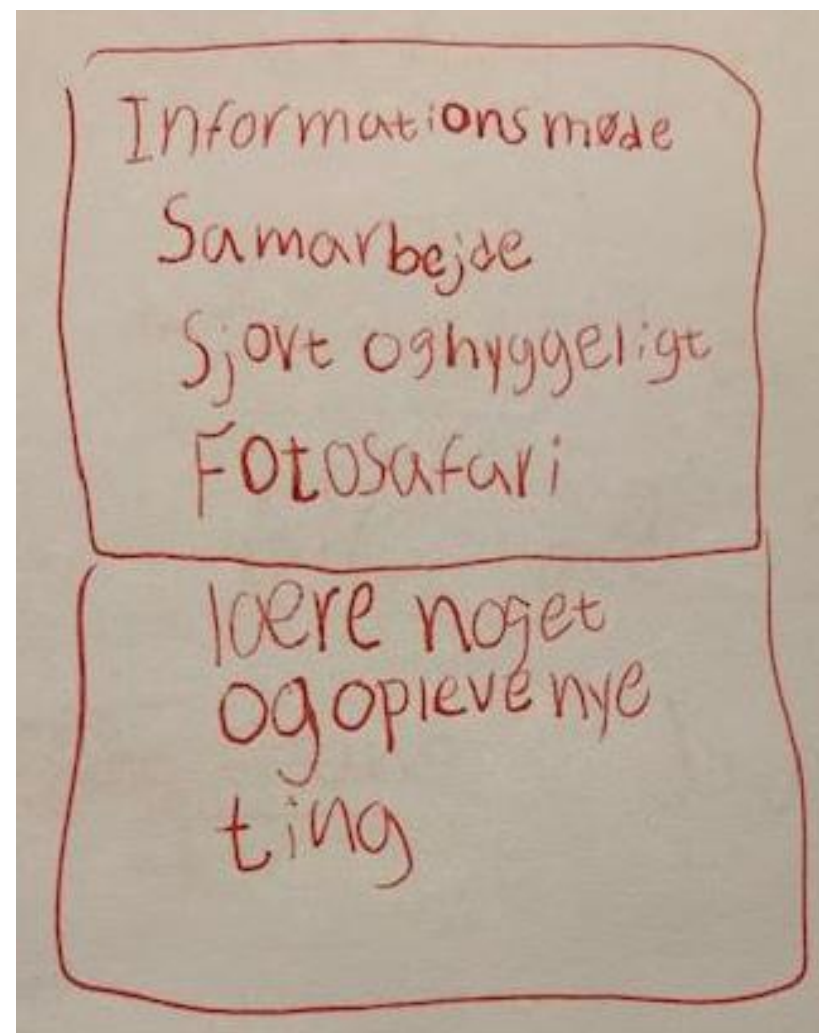 Informationsmøde
Samarbejde
Sjovt og hyggeligt
Fotosafari
lære noget
og opleve nye
ting